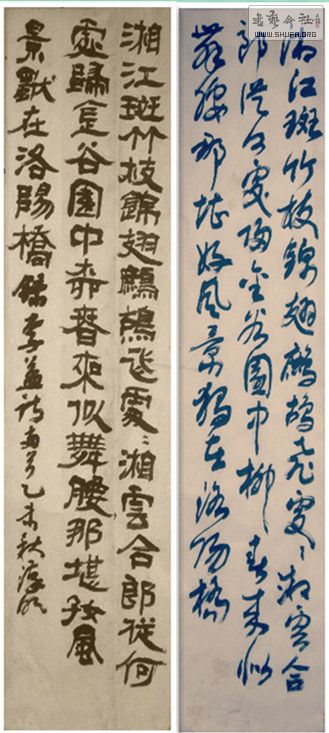 书艺公社
WWW.SHUFA.ORG
湘江斑竹枝錦翅鷓鴣飛處〻湘雲合
郎從何處歸金谷園中柳春來似
舞腰那堪好風景獨在洛陽橋
湘江斑竹枝錦翅鷓鴣飛處〻湘雲合郎從何
處歸金谷園中柳春來似舞腰那堪好風
景獨在洛陽橋 錄李益詩兩首乙未秋